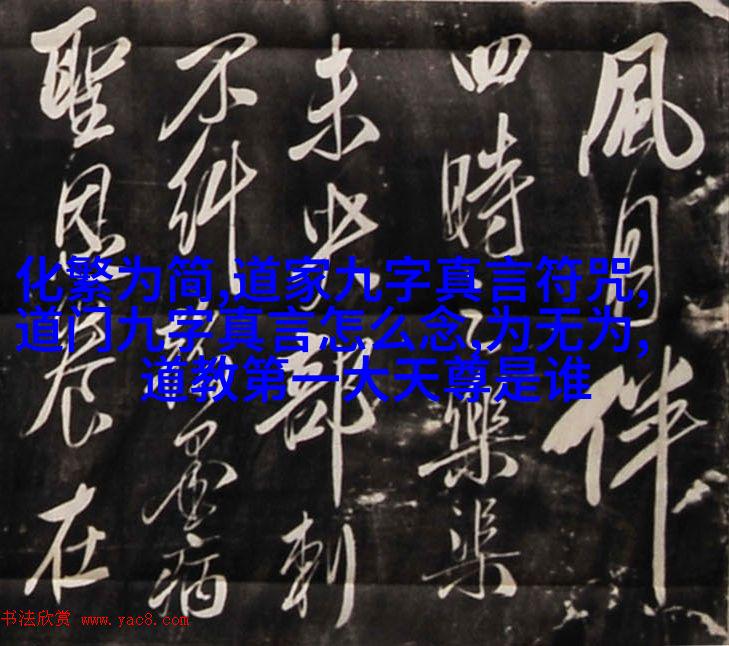 風月伴
四時樂渠
未央部刺
不糾墨病
聖恩在
化繁为简,道家九字真言符咒,
道门九字真言怎么念,为无为,
道教第一大天尊是谁
书法欣赏 www.yac8.com